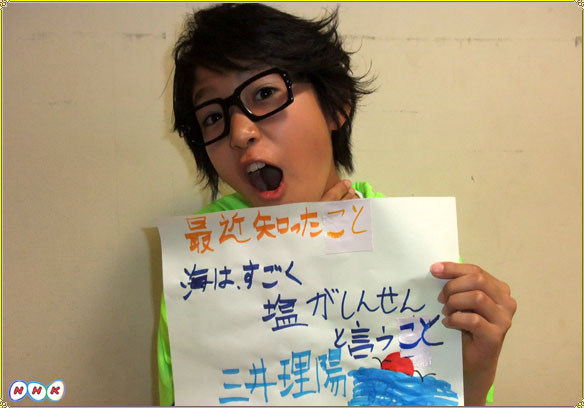 最近知ったこと
海は、すごく
塩がしんせん
と言うこと
三井理陽
NHK